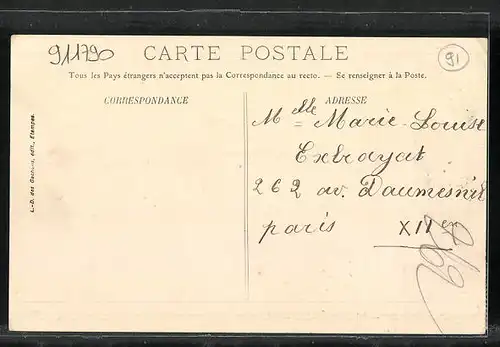 911790
CARTE POSTALE
91
Tous les Pays étrangers n'acceptent pas la Correspondance au recto. — Se renseigner à la Poste.
CORRESPONDANCE
ADRESSE
Mlle Marie-Louise
Extrayat
262 av. Daumesnil
paris XIIe
L.-D. des Gachons, édit., Etampes.